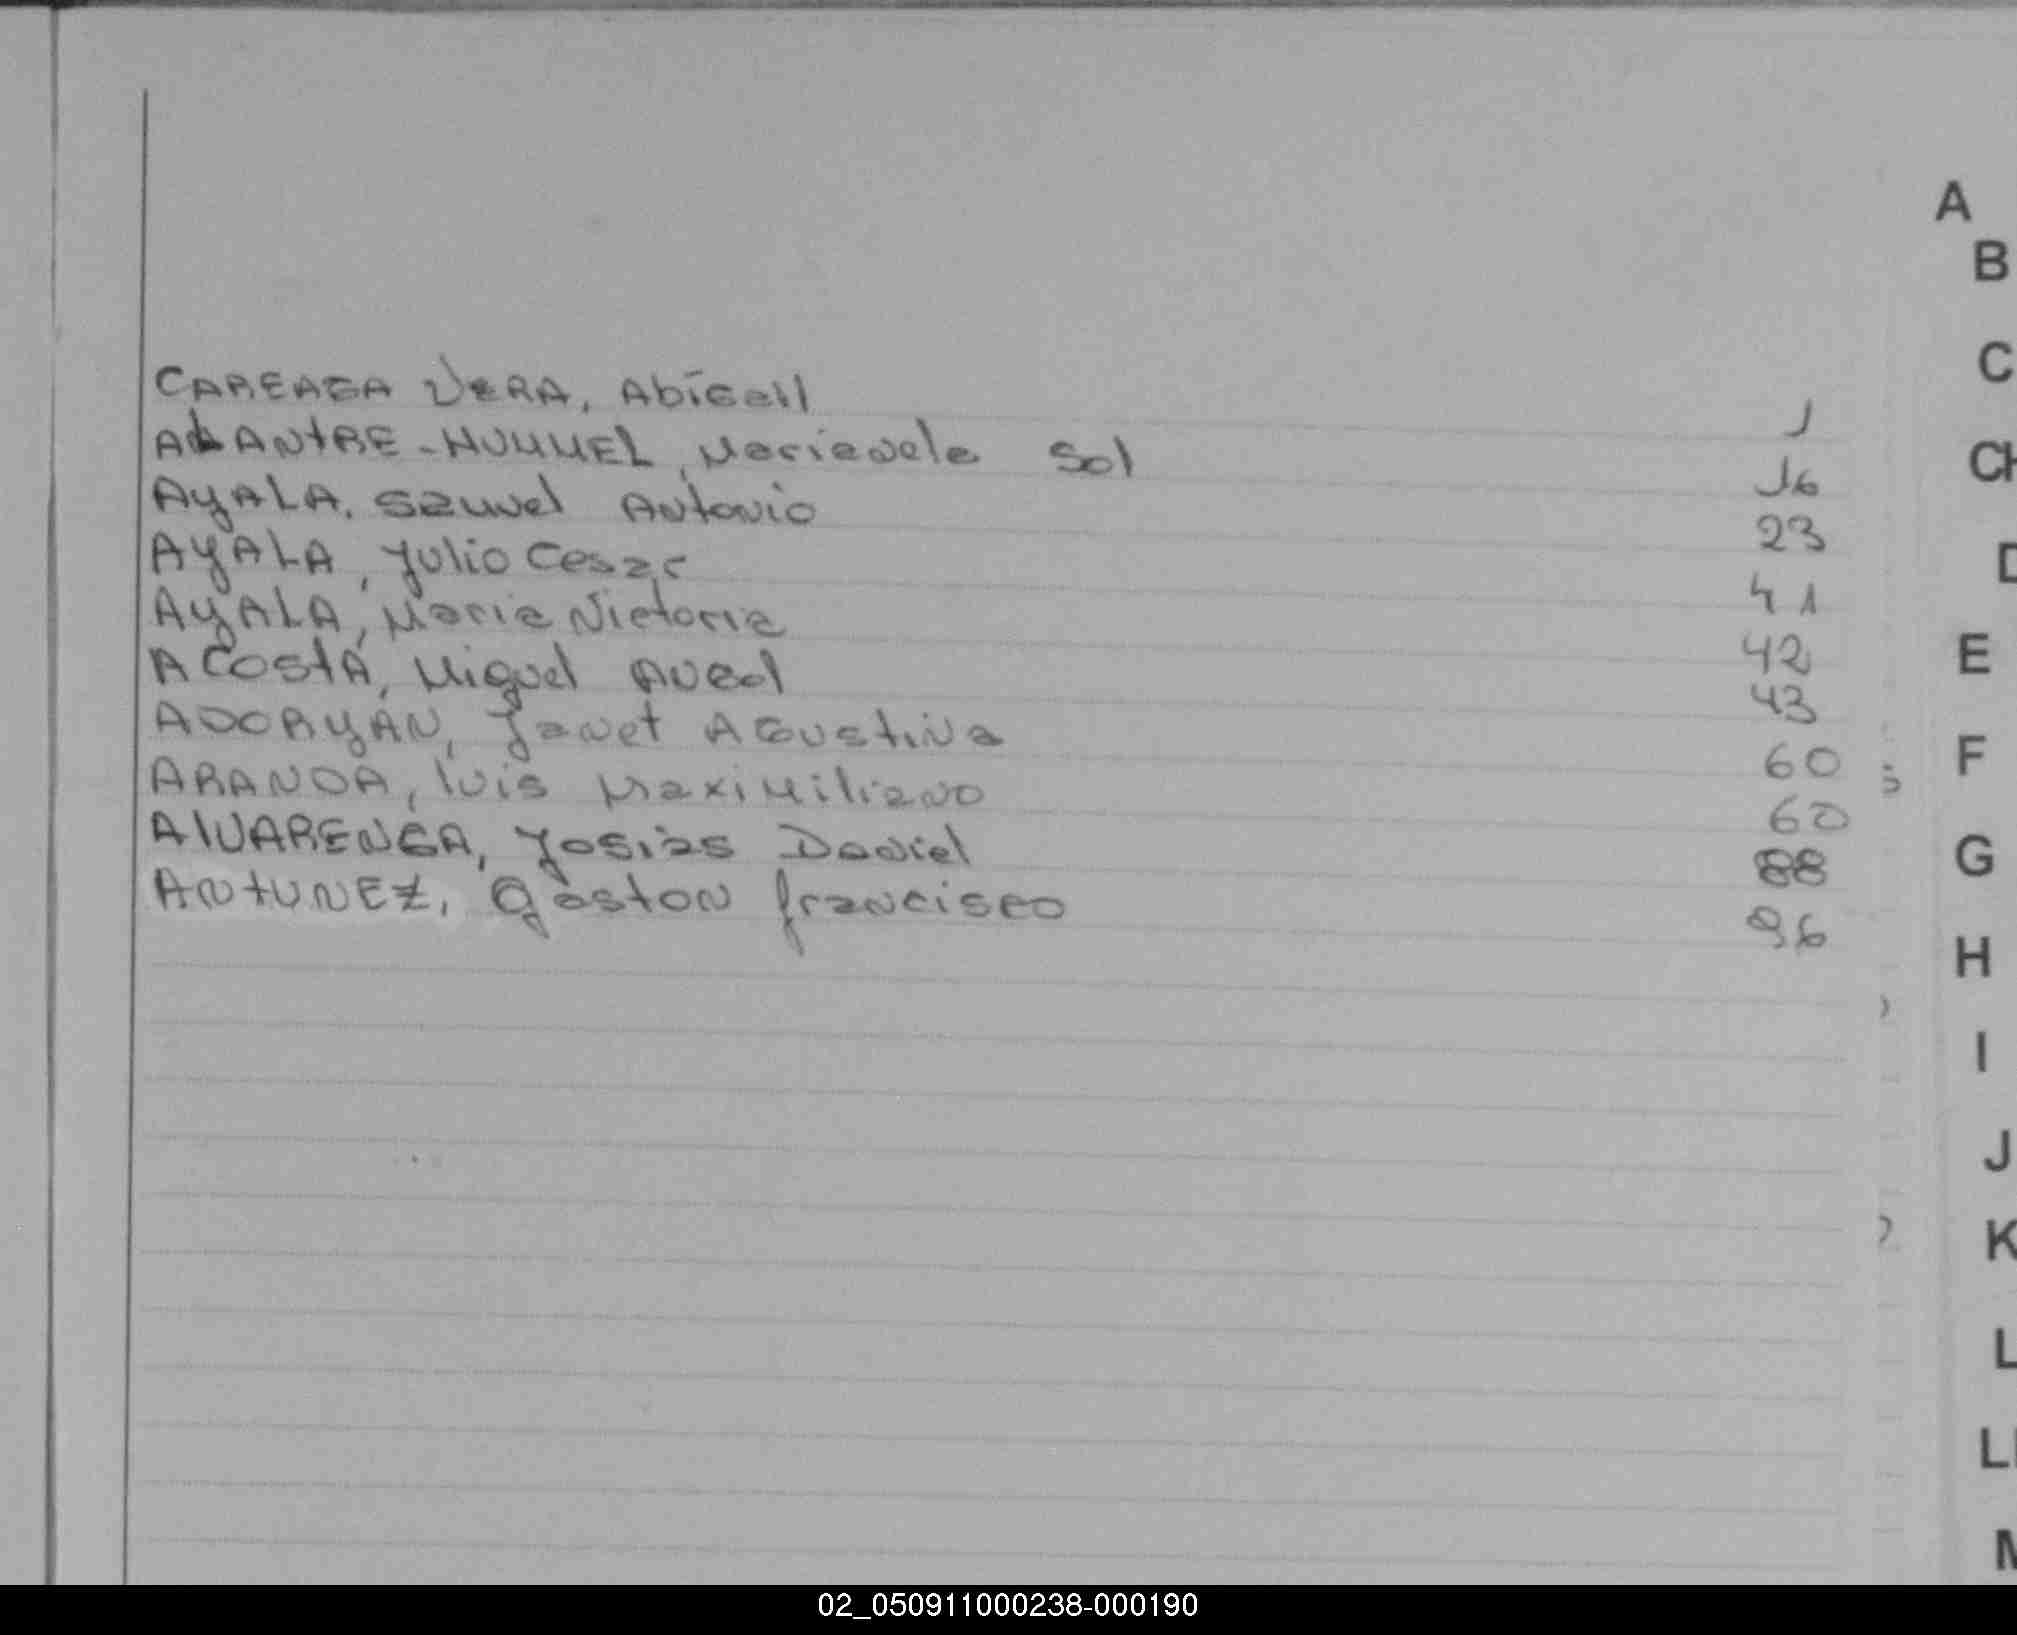 CAREAGA VERA, Abigail 1
ALANTRE-HUMMEL, Marianela Sol 16
AyALA, Samuel Antonio 23
AyALA, Julio Cesar 41
AyALA, Maria Victoria 42
ACOStA, Miguel Angel 43
ADORyÁN, Janet Agustina 60
ARANDA, luis Maximiliano 60
AlVARENGA, Josias Daniel 88
ANtUNEZ, Gaston francisco 96
A
B
C
CH
D
E
F
G
H
I
J
K
L
M
02_050911000238-000190